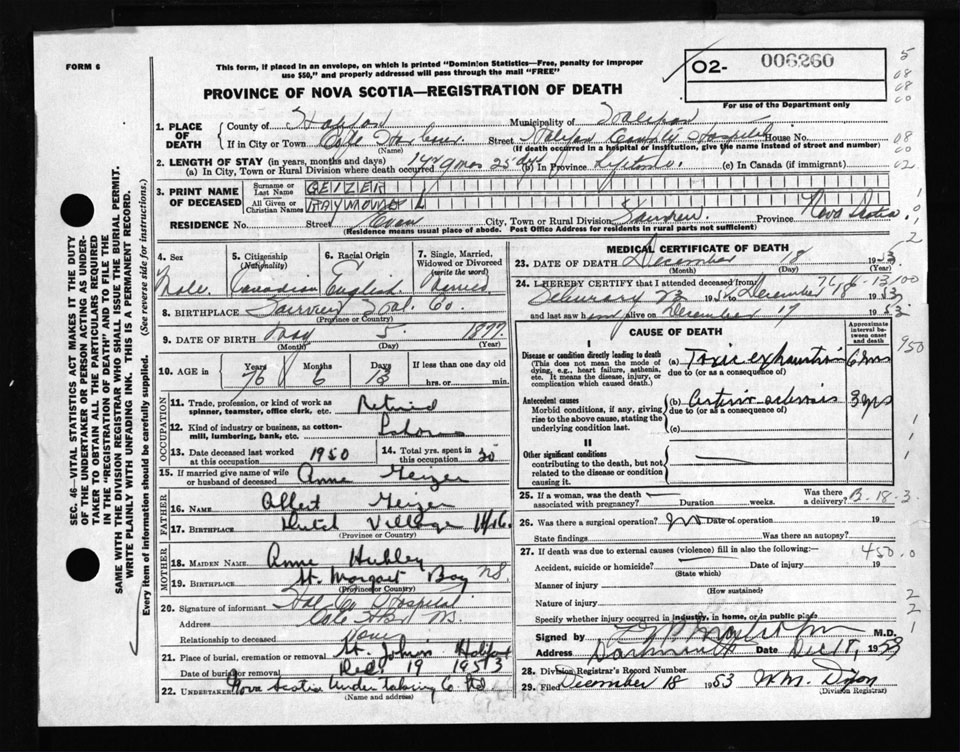 FORM 6
This form, if placed in an envelope, on which is printed "Dominion Statistics—Free, penalty for improper
use $50," and properly addressed will pass through the mail "FREE"
O2- 006260
For use of the Department only
PROVINCE OF NOVA SCOTIA—REGISTRATION OF DEATH
1. PLACE OF DEATH
County of Halifax Municipality of Halifax
If in City or Town Cole Harbour Street Halifax County Hospital House No.
(Name) (If death occurred in a hospital or institution, give the name instead of street and number)
2. LENGTH OF STAY (in years, months and days)
(a) In City, Town or Rural Division where death occurred 9 mos 25 dys (b) In Province Lifetime (c) In Canada (if immigrant)
3. PRINT NAME OF DECEASED
Surname or Last Name GEIZER
All Given or Christian Names RAYMOND L
RESIDENCE No. Street Evans City, Town or Rural Division Fairview Province Nova Scotia
(Residence means usual place of abode. Post Office Address for residents in rural parts not sufficient)
4. Sex Male
5. Citizenship (Nationality) Canadian
6. Racial Origin English
7. Single, Married, Widowed or Divorced (write the word) Married
8. BIRTHPLACE Fairview Hal. Co.
(Province or Country)
9. DATE OF BIRTH May 5 1877
(Month) (Day) (Year)
10. AGE Years 76 Months 6 Days 13 If less than one day old
hrs. or min.
OCCUPATION
11. Trade, profession, or kind of work as
spinner, teamster, office clerk, etc. Retired
12. Kind of industry or business, as cotton-
mill, lumbering, bank, etc.
13. Date deceased last worked at this occupation 1950
14. Total yrs. spent in this occupation 30
15. If married give name of wife or husband of deceased Anne Geizer
FATHER
16. NAME Albert Geizer
17. BIRTHPLACE Dutch Village Hfx.
(Province or Country)
MOTHER
18. MAIDEN NAME Anne Hubley
19. BIRTHPLACE St. Margaret Bay NS
(Province or Country)
20. Signature of informant Hal Co Hospital
Address Cole Hbr NS.
Relationship to deceased None
21. Place of burial, cremation or removal St. Johns Halifax
Date of burial or removal Dec 19 1953
22. UNDERTAKER Nova Scotia Undertaking Co Ltd
(Name and address)
MEDICAL CERTIFICATE OF DEATH
23. DATE OF DEATH December 18 1953
(Month) (Day) (Year)
24. I HEREBY CERTIFY that I attended deceased from
February 23 to December 18 1953
and last saw him alive on December 17 1953
CAUSE OF DEATH
Approximate interval between onset and death
I
Disease or condition directly leading to death (a) Toxic exhaustion 6 ms
(This does not mean the mode of dying, e.g., heart failure, asthenia, etc. It means the disease, injury, or complication which caused death.
due to (or as a consequence of)
Antecedent causes (b) Arterio-sclerosis 3 yrs
Morbid conditions, if any, giving rise to the above cause, stating the underlying condition last.
due to (or as a consequence of)
(c)
II
Other significant conditions
contributing to the death, but not related to the disease or condition causing it.
25. If a woman, was the death associated with pregnancy? Duration weeks. Was there a delivery? B-18-3
26. Was there a surgical operation? No Date of operation 19
State findings Was there an autopsy?
27. If death was due to external causes (violence) fill in also the following:— 450.0
Accident, suicide or homicide? Date of injury 19
(State which)
Manner of injury
(How sustained)
Nature of injury
Specify whether injury occurred in industry, in home, or in public place
Signed by M.D.
Address Dartmouth Date Dec 18, 1953
28. Division Registrar's Record Number
29. Filed December 18 1953 W.M. Dixon
(Division Registrar)
SEC. 46—VITAL STATISTICS ACT MAKES IT THE DUTY
OF THE UNDERTAKER OR PERSON ACTING AS UNDER-
TAKER TO OBTAIN ALL THE PARTICULARS REQUIRED
IN THE "REGISTRATION OF DEATH" AND TO FILE THE
SAME WITH THE DIVISION REGISTRAR WHO SHALL ISSUE THE BURIAL PERMIT.
WRITE PLAINLY WITH UNFADING INK. THIS IS A PERMANENT RECORD.
Every item of information should be carefully supplied. (See reverse side for instructions.)